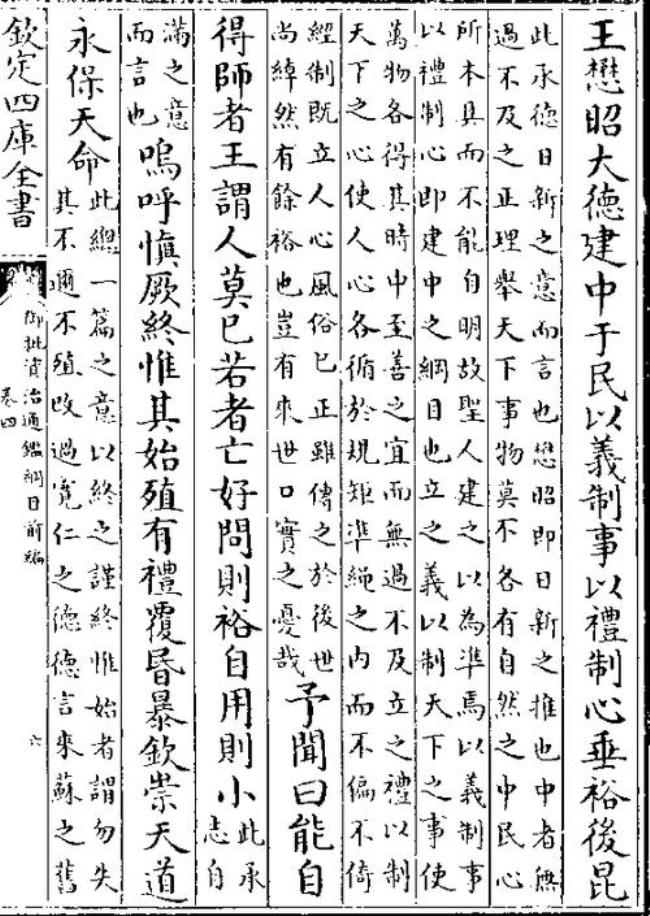 王懋昭大德建中于民以義制事以禮制心垂裕後昆
此承德日新之意而言也懋昭即日新之推也中者無
過不及之正理舉天下事物莫不各有自然之中民心
所本具而不能自明故聖人建之以為準焉以義制事
以禮制心即建中之綱目也立之義以制天下之事使
萬物各得其時中至善之宜而無過不及立之禮以制
天下之心使人心各循於規矩準繩之内而不偏不倚
經制既立人心風俗已正雖傳之於後世
尚綽然有餘裕也豈有來世口實之憂哉
予聞曰能自
得師者王謂人莫已若者亡好問則裕自用則小
此承
志自
滿之意
而言也
嗚呼慎厥終惟其始殖有禮覆昏暴欽崇天道
永保天命
此總一篇之意以終之謹終惟始者謂勿失
其不邇不殖改過寛仁之德德言來蘇之舊
欽定四庫全書
御批資治通鑑綱目前編
卷四
六